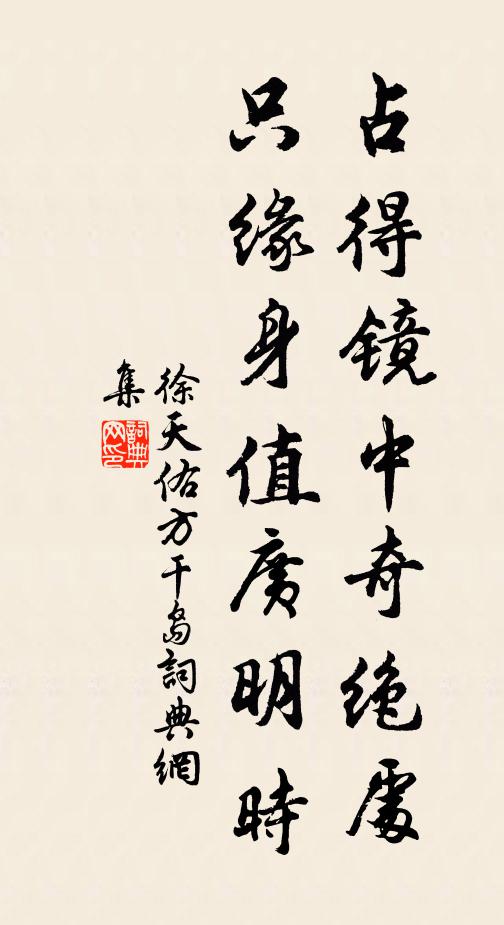 占得镜中奇絶處
只緣身值廣明時
徐天佑方干島詞典網
集
詞典网印